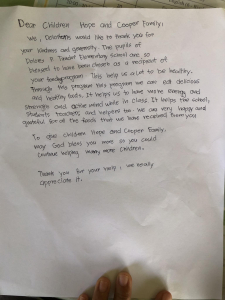 Dear Children Hope and Cooper Family,
We, would like to thank you for
your kindness and generosity. The pupils of
Dolores R. Elementary School are so
blessed to have been chosen as a recipient of
your feeding program. This help us a lot to be healthy.
Through this program this program we can eat delicious
and healthy foods. It helps us to have more energy and
strength and active mind while in class. It helps the school,
students teachers, and helpers too. We are very happy and
grateful for all the foods that we have received from you
To give children Hope and Cooper Family,
may God bless you more so you could
continue helping many more children.
Thank you for your help, we really
appreciate it.